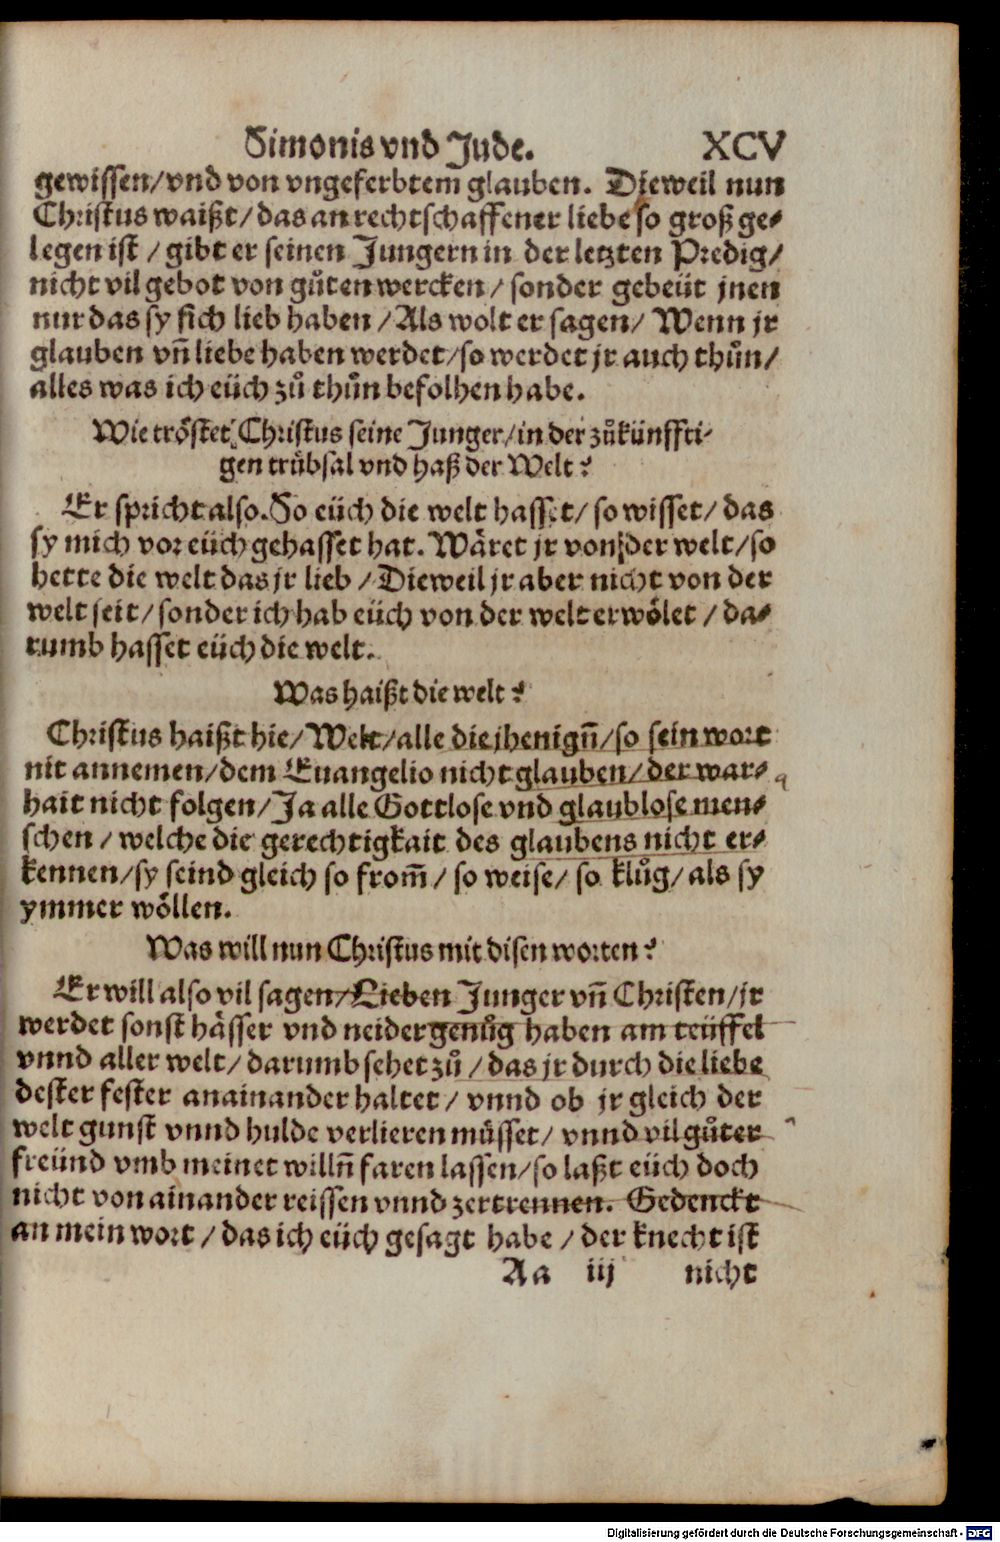 Simonis vnd Jude. XCV
gewissen/vnd von vngeferbtem̄ glauben. Dieweil nun
Christus waißt/das an rechtschaffener liebe so groß ge-
legen ist/gibt er seinen Jungern in der letzten Predig/
nicht vil gebot von gůten wercken/sonder gebeüt jnen
nur das sy sich lieb haben/Als wolt er sagen/Wenn jr
glauben vñ liebe haben werdet/so werdet jr auch thůn/
alles was ich eüch zů thůn befolhen habe.
Wie tröstet Christus seine Junger/in der zůkünffti-
gen trübsal vnd haß der Welt?
Er spricht also. So eüch die welt hasset/so wisset/das
sy mich vor eüch gehasset hat. Wäret jr von der welt/so
hette die welt das jr lieb/Dieweil jr aber nicht von der
welt seit/sonder ich hab eüch von der welt erwölet/da-
rumb hasset eüch die welt.
Was haißt die welt?
Christus haißt hie/Welt/alle die jhenigñ/so sein wort
nit annemen/dem Euangelio nicht glauben/der war-
hait nicht folgen/Ja alle Gottlose vnd glaublose men-
schen/welche die gerechtigkait des glaubens nicht er-
kennen/sy seind gleich so from̄/so weise/so klůg/als sy
ymmer wöllen.
Was will nun Christus mit disen worten?
Er will also vil sagen/Lieben Junger vñ Christen/jr
werdet sonst hässer vnd neider genůg haben am teüffel
vnnd aller welt/darumb sehet zů/das jr durch die liebe
dester fester anainander haltet/vnnd ob jr gleich der
welt gunst vnnd hulde verlieren müsset/vnnd vil gůter
freünd vmb meinet willñ faren lassen/so laßt eüch doch
nicht von ainander reissen vnnd zertrennen. Gedenckt
an mein wort/das ich eüch gesagt habe/der knecht ist
Aa iij nicht
Digitalisierung gefördert durch die Deutsche Forschungsgemeinschaft - DFG